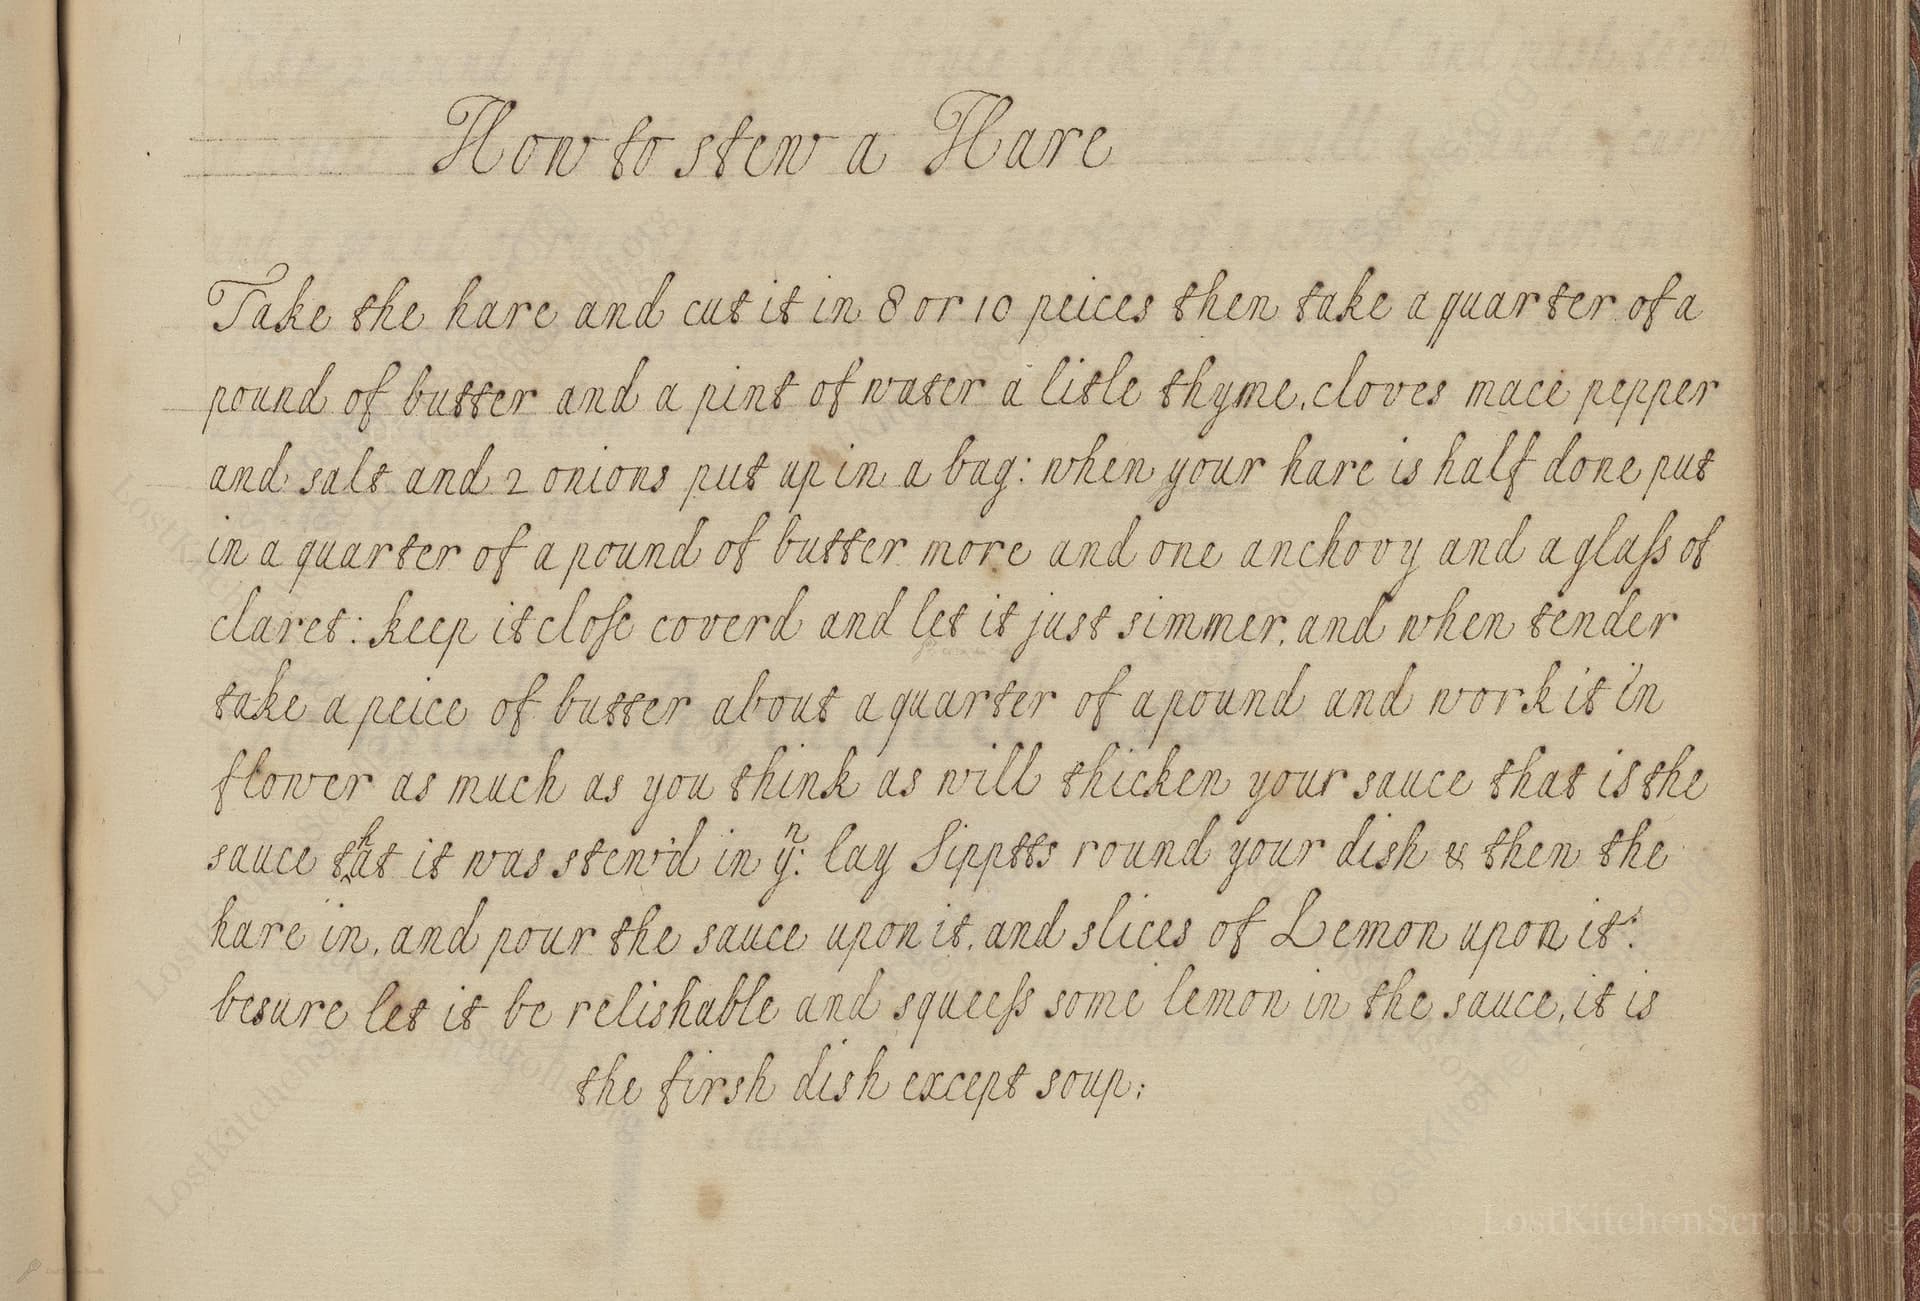 How to stew a Hare
Take the hare and cut it in 8 or 10 peices then take a quarter of a
pound of butter and a pint of water a litle thyme, cloves mace pepper
and salt and 2 onions put up in a bag: when your hare is half done put
in a quarter of a pound of butter more and one anchovy and a glaſs of
claret: keep it cloſe coverd and let it just simmer, and when tender
take a peice of butter about a quarter of a pound and work it in
flower as much as you think as will thicken your sauce that is the
sauce that it was stew'd in yⁿ: lay Sipptts round your dish & then the
hare in, and pour the sauce upon it, and slices of Lemon upon it:
besure let it be relishable and squeeſs some lemon in the sauce, it is
the firsh dish except soup:
LostKitchenScrolls.org